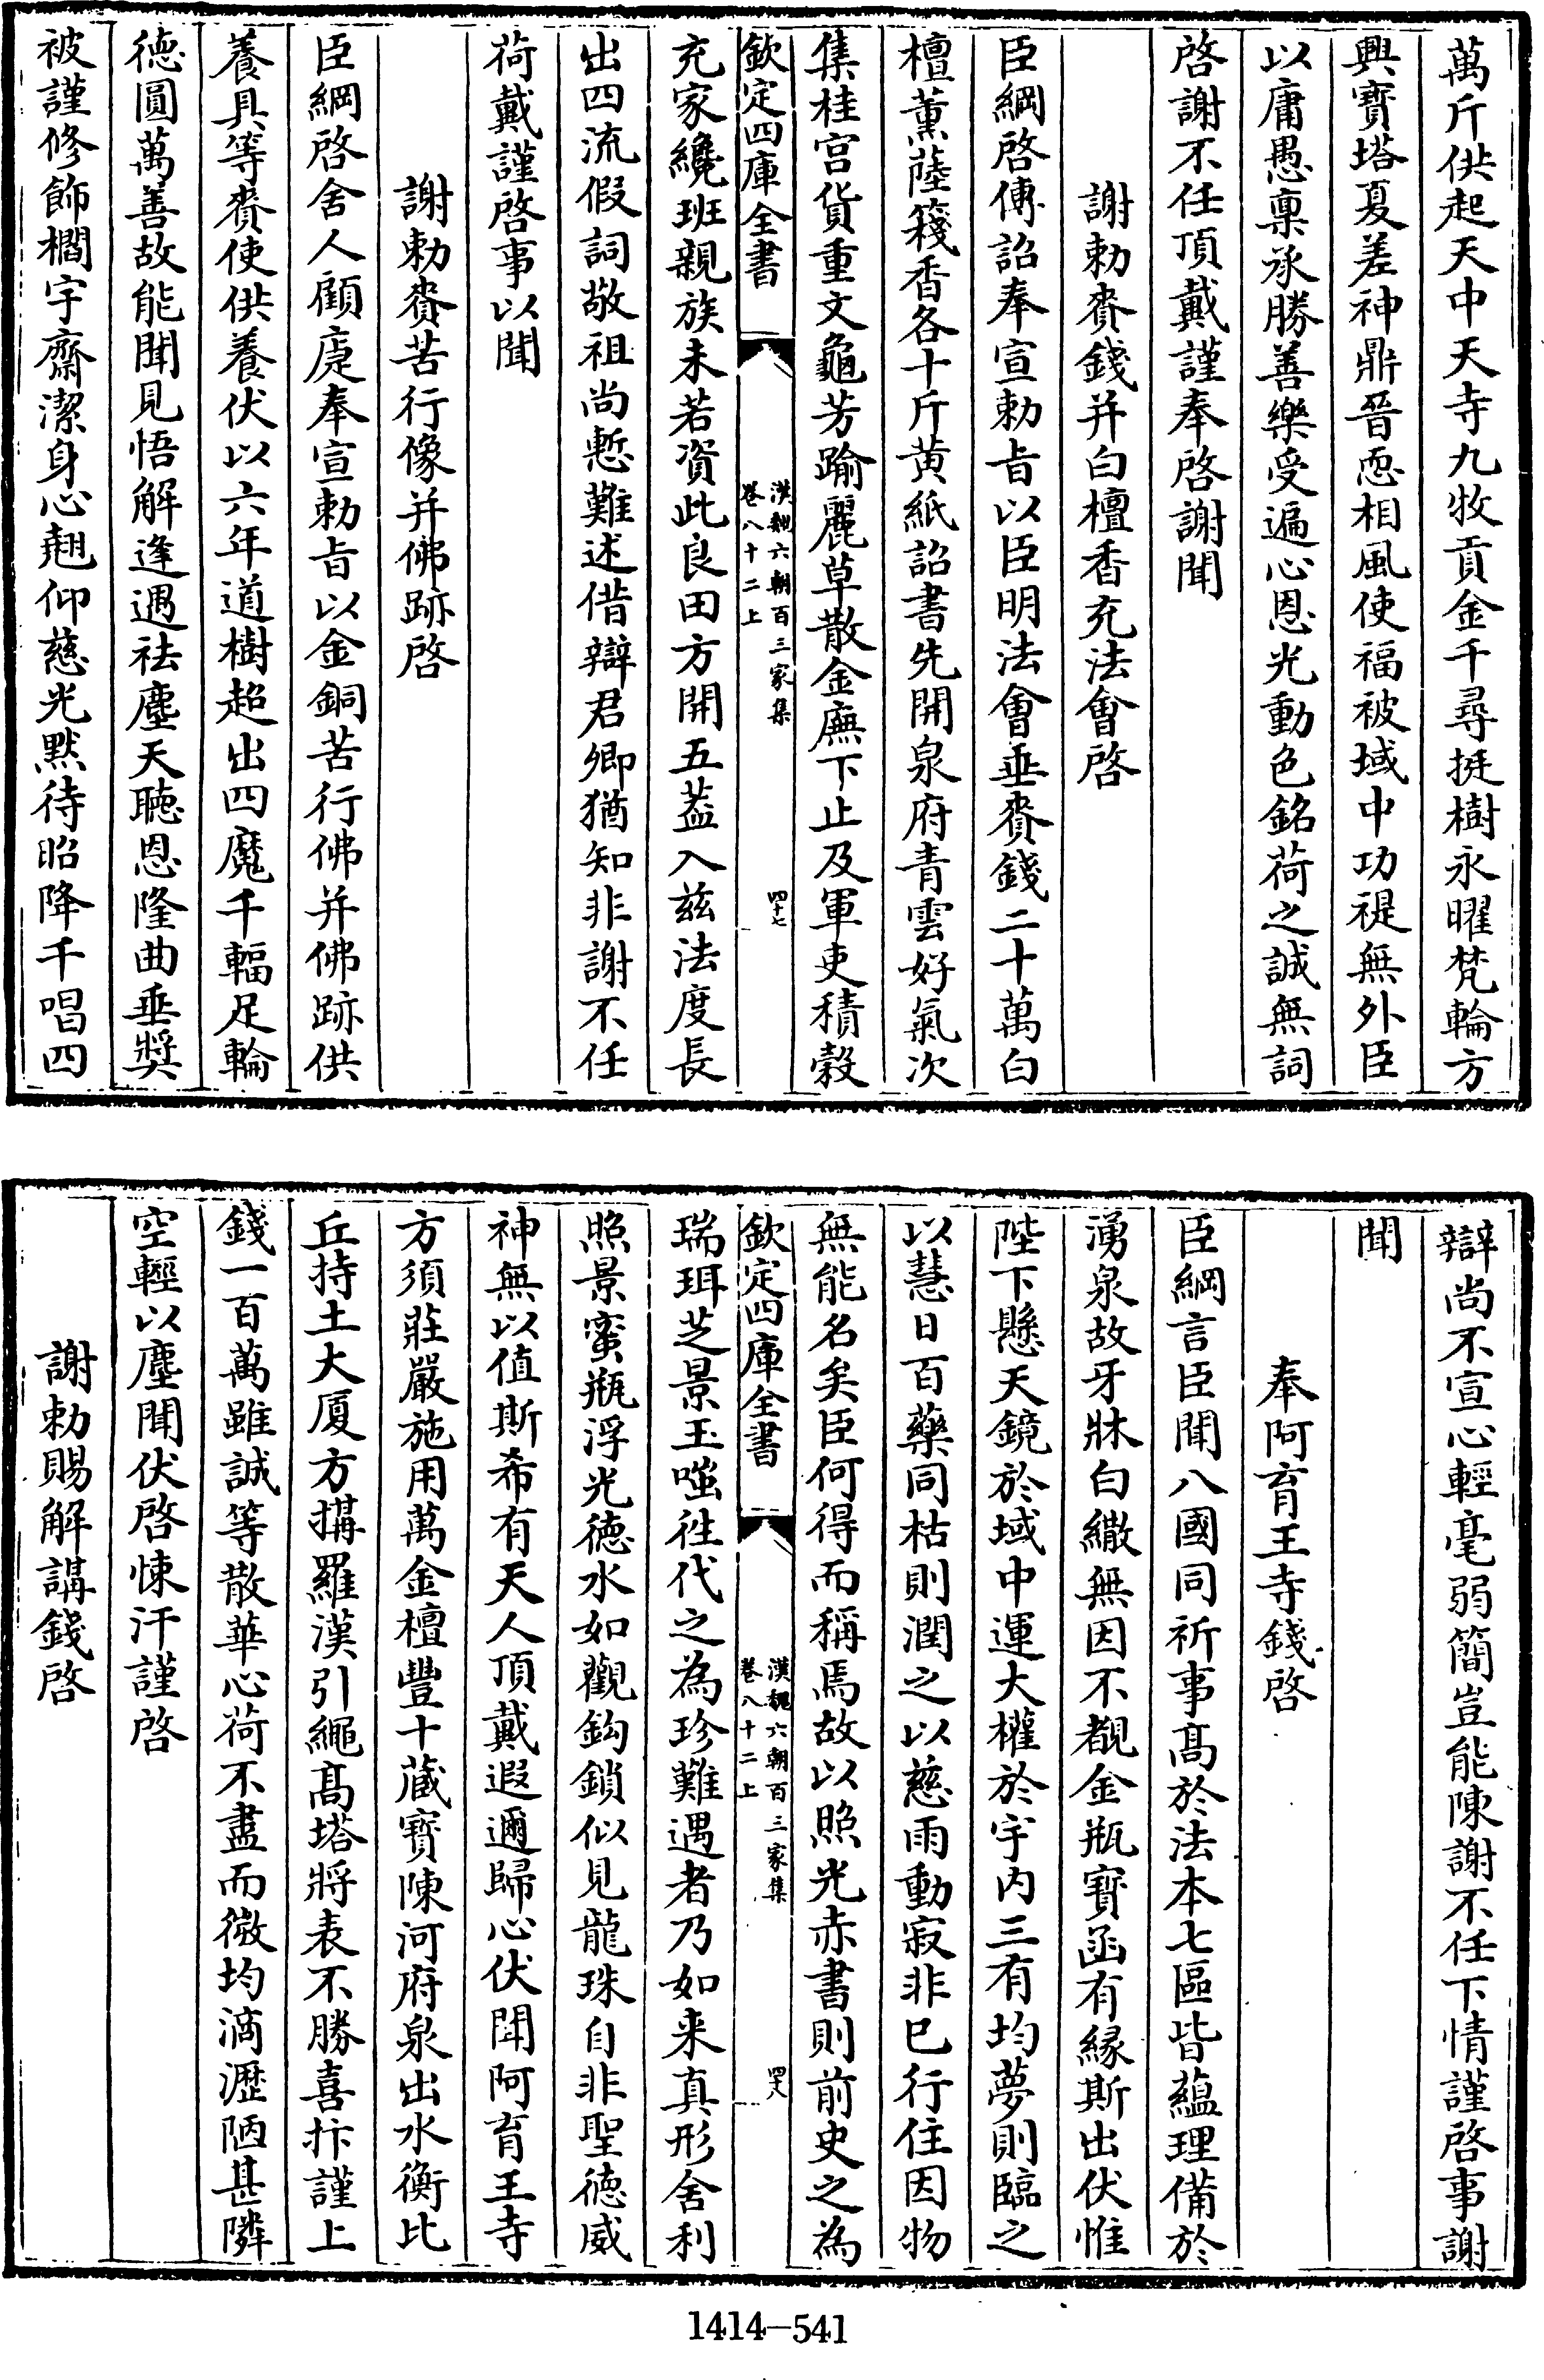 萬斤供起天中天寺九牧貢金千尋挺樹永曜梵輪方
興寶塔夏差神鼎晉恧相風使福被域中功禔無外臣
以庸愚稟承勝善樂受遍心恩光動色銘荷之誠無詞
啓謝不任頂戴謹奉啓謝聞
謝勅賚錢并白檀香充法會啓
臣綱啓傳詔奉宣勅旨以臣明法會垂賚錢二十萬白
檀薰陸箋香各十斤黄紙詔書先開泉府青雲好氣次
集桂宫貨重文龜芳踰麗草散金廡下止及軍吏積穀
欽定四庫全書
漢魏六朝百三家集
卷八十二上
四十七
充家纔班親族未若資此良田方開五葢入兹法度長
出四流假詞敬祖尚慙難述借辯君卿猶知非謝不任
荷戴謹啓事以聞
謝勅賚苦行像并佛跡啓
臣綱啓舍人顧㢞奉宣勅旨以金銅苦行佛并佛跡供
養具等賚使供養伏以六年道樹超出四魔千輻足輪
徳圓萬善故能聞見悟解逢遇祛塵天聴恩隆曲垂奬
被謹修飾櫩宇齋潔身心翹仰慈光黙待昭降千唱四
辯尚不宣心輕毫弱簡豈能陳謝不任下情謹啓事謝
聞
奉阿育王寺錢啓
臣綱言臣聞八國同祈事髙於法本七區皆藴理備於
湧泉故牙牀白繖無因不覩金瓶寶函有縁斯出伏惟
陛下懸天鏡於域中運大權於宇内三有均夢則臨之
以慧日百藥同枯則潤之以慈雨動寂非已行住因物
無能名矣臣何得而稱焉故以照光赤書則前史之為
欽定四庫全書
漢魏六朝百三家集
卷八十二上
四十八
瑞珥芝景玉嗤徃代之為珍難遇者乃如来真形舍利
照景蜜瓶浮光徳水如觀鈎鎖似見龍珠自非聖徳威
神無以值斯希有天人頂戴遐邇歸心伏聞阿育王寺
方須莊嚴施用萬金檀豐十蔵寶陳河府泉出水衡比
丘持土大厦方搆羅漢引繩髙塔將表不勝喜抃謹上
錢一百萬雖誠等散華心荷不盡而微均滴瀝陋甚隣
空輕以塵聞伏啓悚汗謹啓
謝勅賜解講錢啓
1414—541